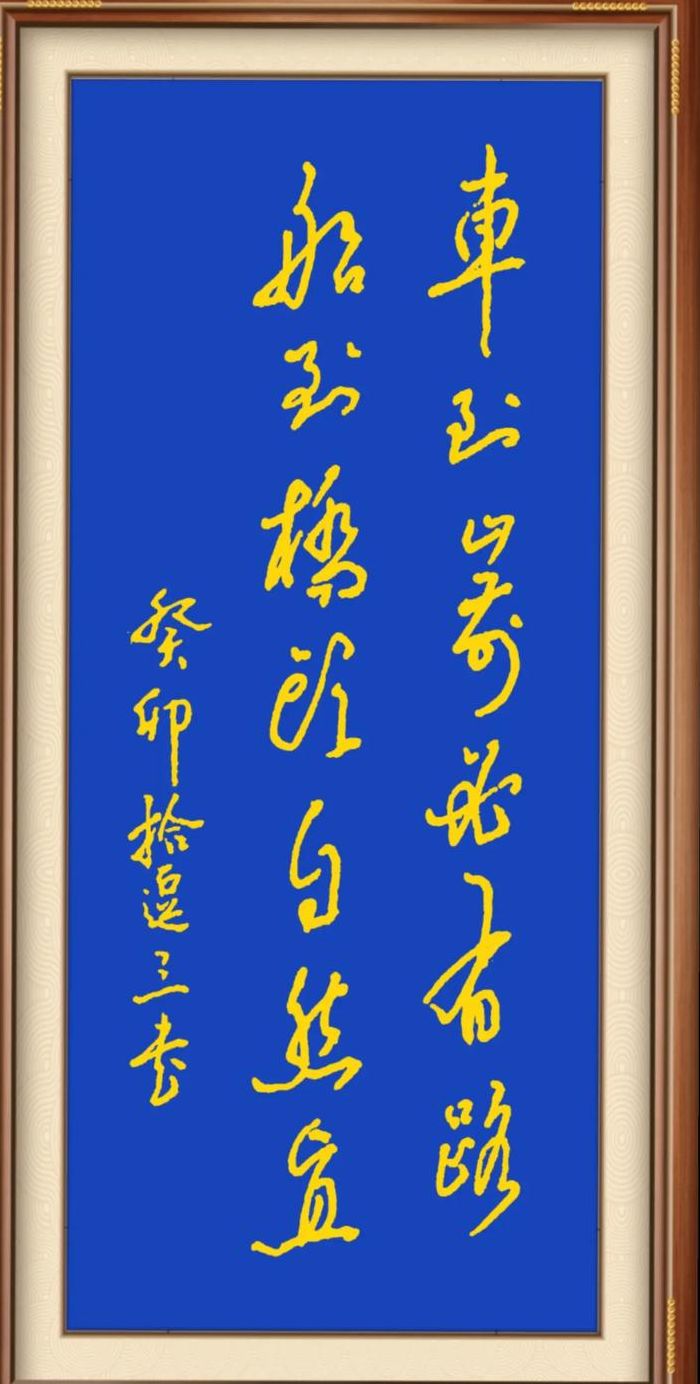 車到山前必有路
船到橋頭自然直
癸卯拾逗三书